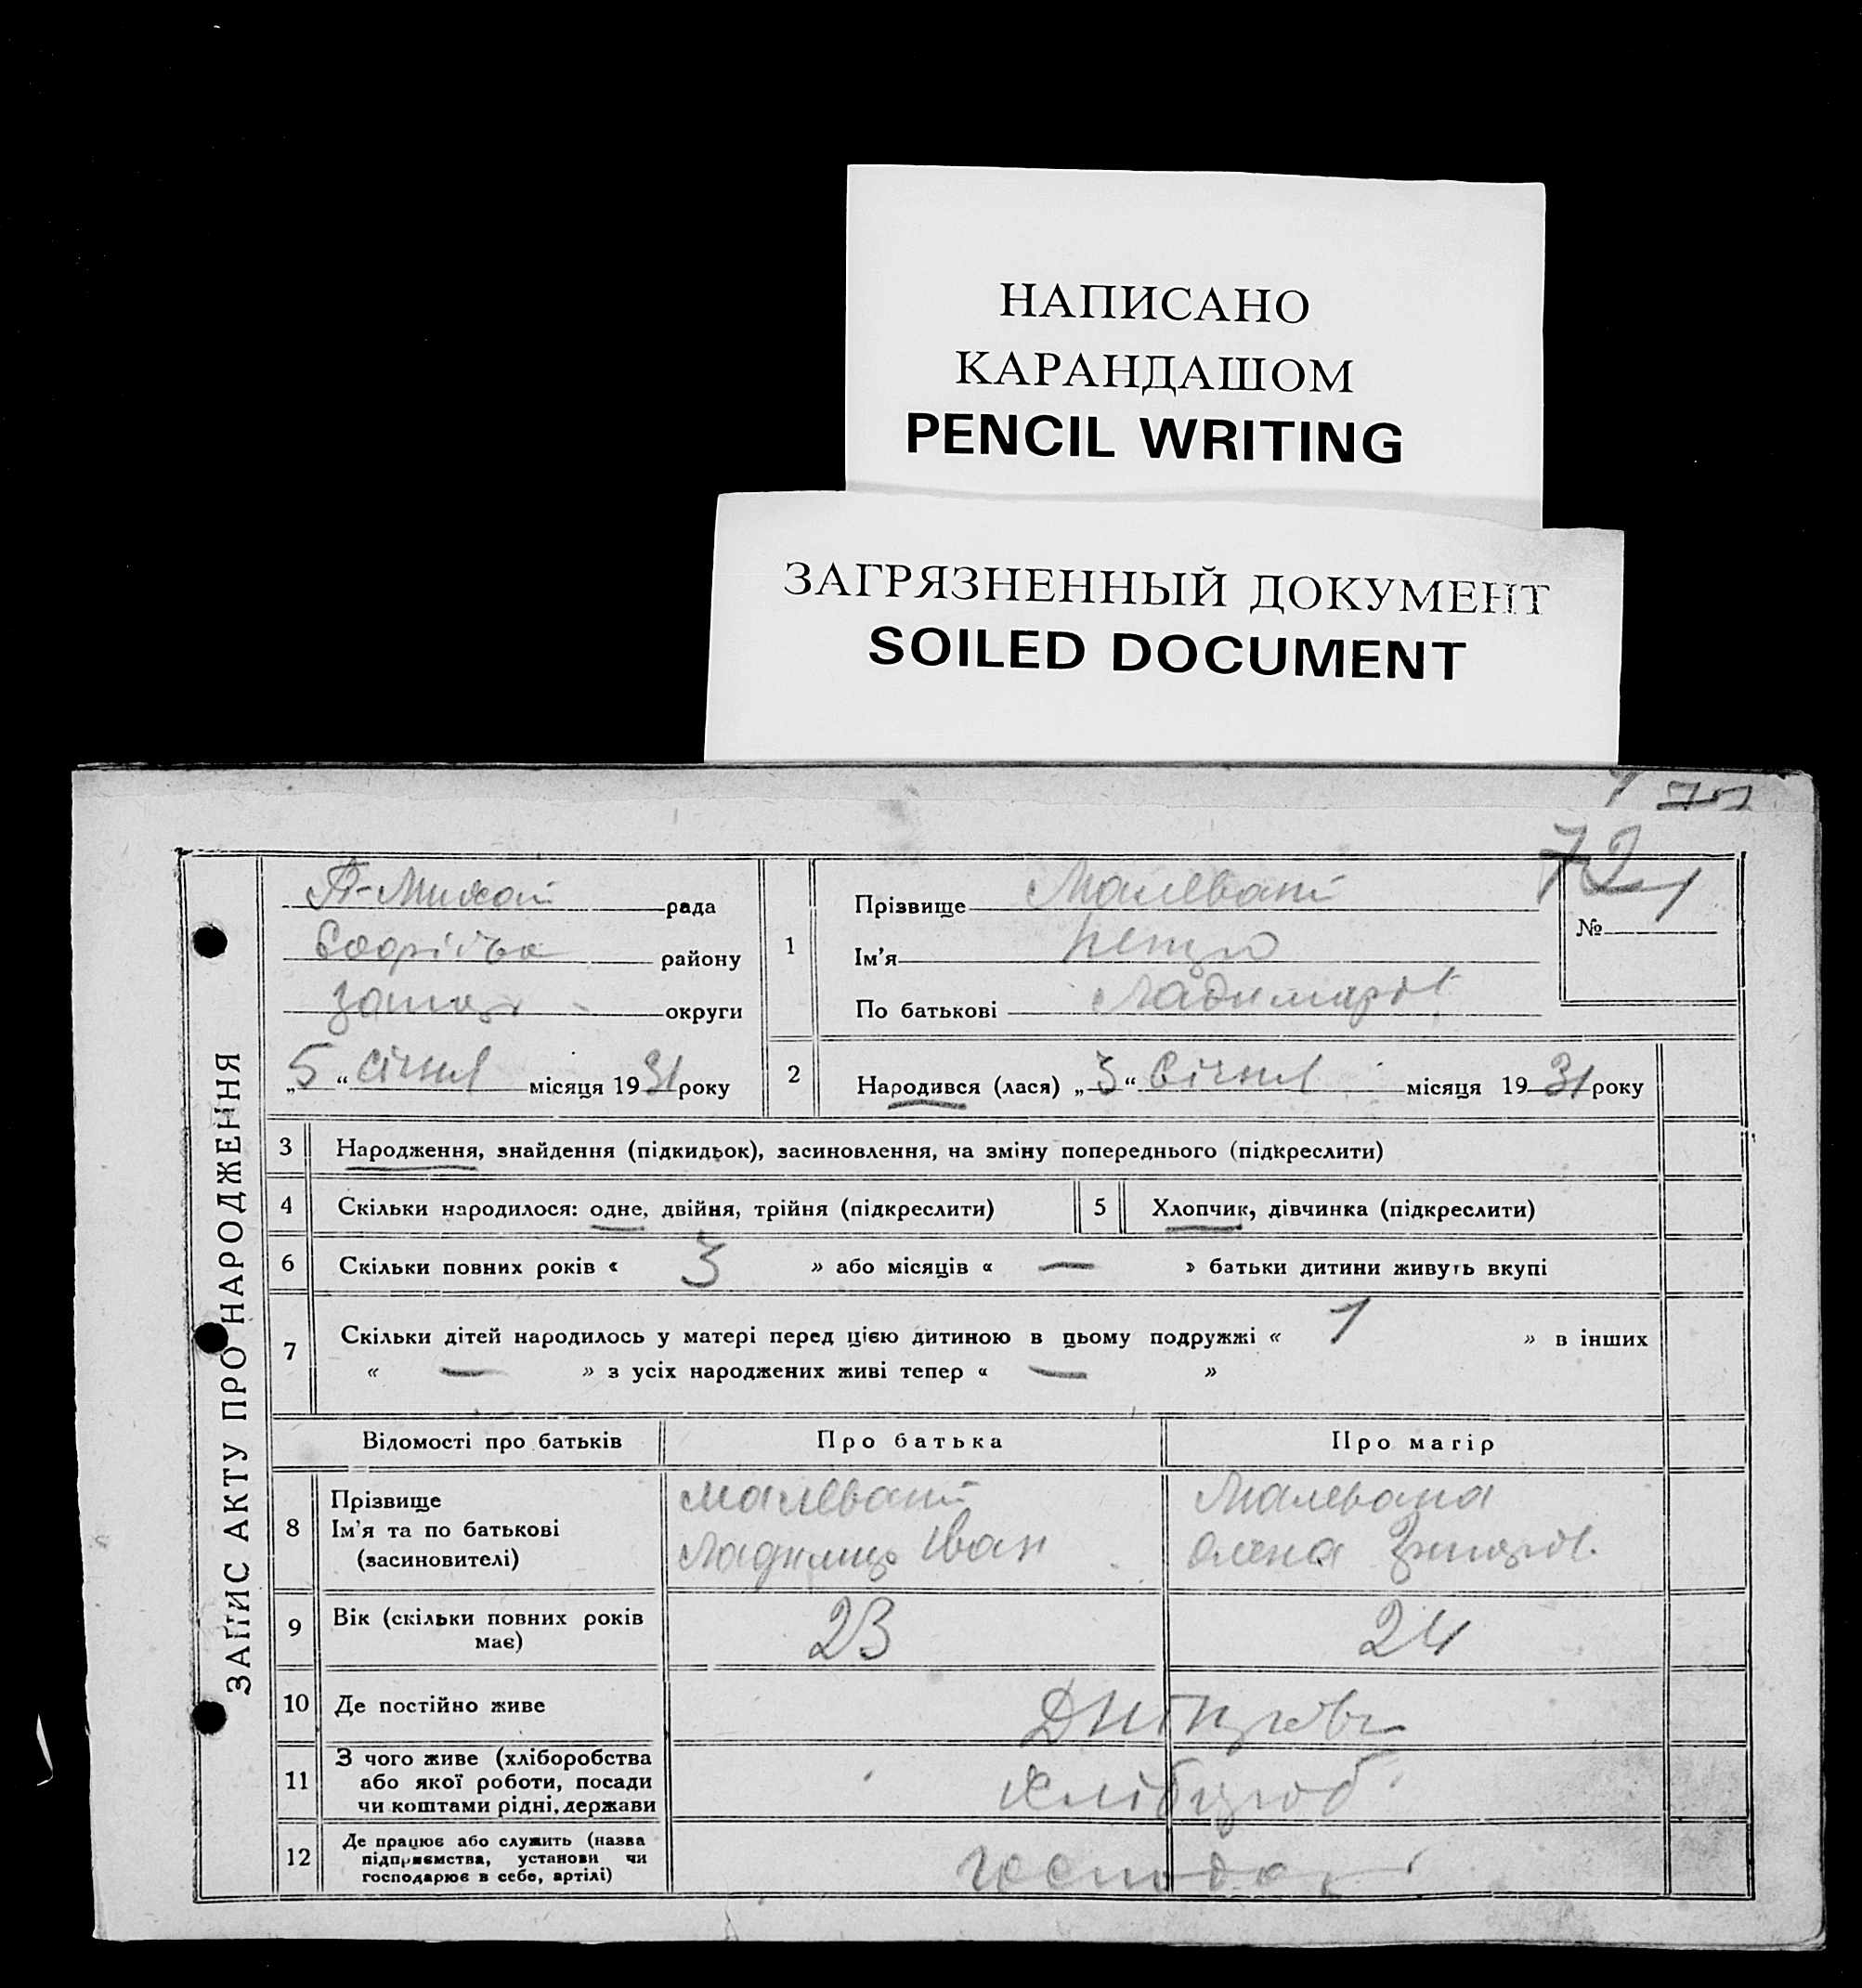 НАПИСАНО
КАРАНДАШОМ
PENCIL WRITING
ЗАГРЯЗНЕННЫЙ ДОКУМЕНТ
SOILED DOCUMENT
72
ЗАПИС АКТУ ПРО НАРОДЖЕННЯ
рада
району
округи
„5“ Січня місяця 1931 року
1
Прізвище Малеваний
Ім'я Петро
По батькові
№
2 Народився (лася) „3“ Січня місяця 1931 року
3 Народження, знайдення (підкидьок), засиновлення, на зміну попереднього (підкреслити)
4 Скільки народилося: одне, двійня, трійня (підкреслити) 5 Хлопчик, дівчинка (підкреслити)
6 Скільки повних років « 3 » або місяців « — » батьки дитини живуть вкупі
7 Скільки дітей народилось у матері перед цією дитиною в цьому подружжі « 1 » в інших
« — » з усіх народжених живі тепер « — »
Відомості про батьків Про батька Про матір
8 Прізвище Малеваний Малевана
Ім'я та по батькові Іван Олена
(засиновителі)
9 Вік (скільки повних років має) 23 24
10 Де постійно живе
11 З чого живе (хліборобства
або якої роботи, посади
чи коштами рідні, держави
Хлібороб
12 Де працює або служить (назва
підприємства, установи чи
господарює в себе, артілі)